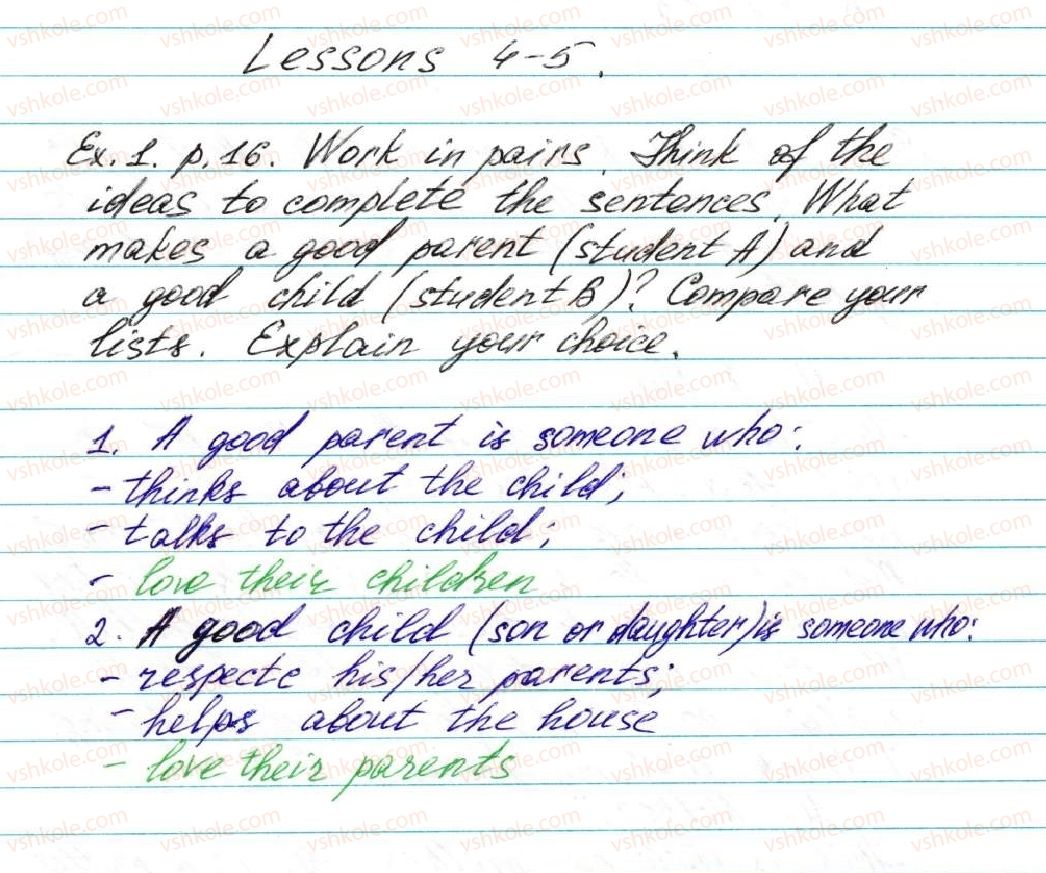 Lessons 4-5.
Ex. 1. p. 16. Work in pairs. Think of the
ideas to complete the sentences. What
makes a good parent (student A) and
a good child (student B)? Compare your
lists. Explain your choice.
1. A good parent is someone who:
- thinks about the child;
- talks to the child;
- love their children
2. A good child (son or daughter) is someone who:
- respects his/her parents;
- helps about the house
- love their parents
vshkole.com